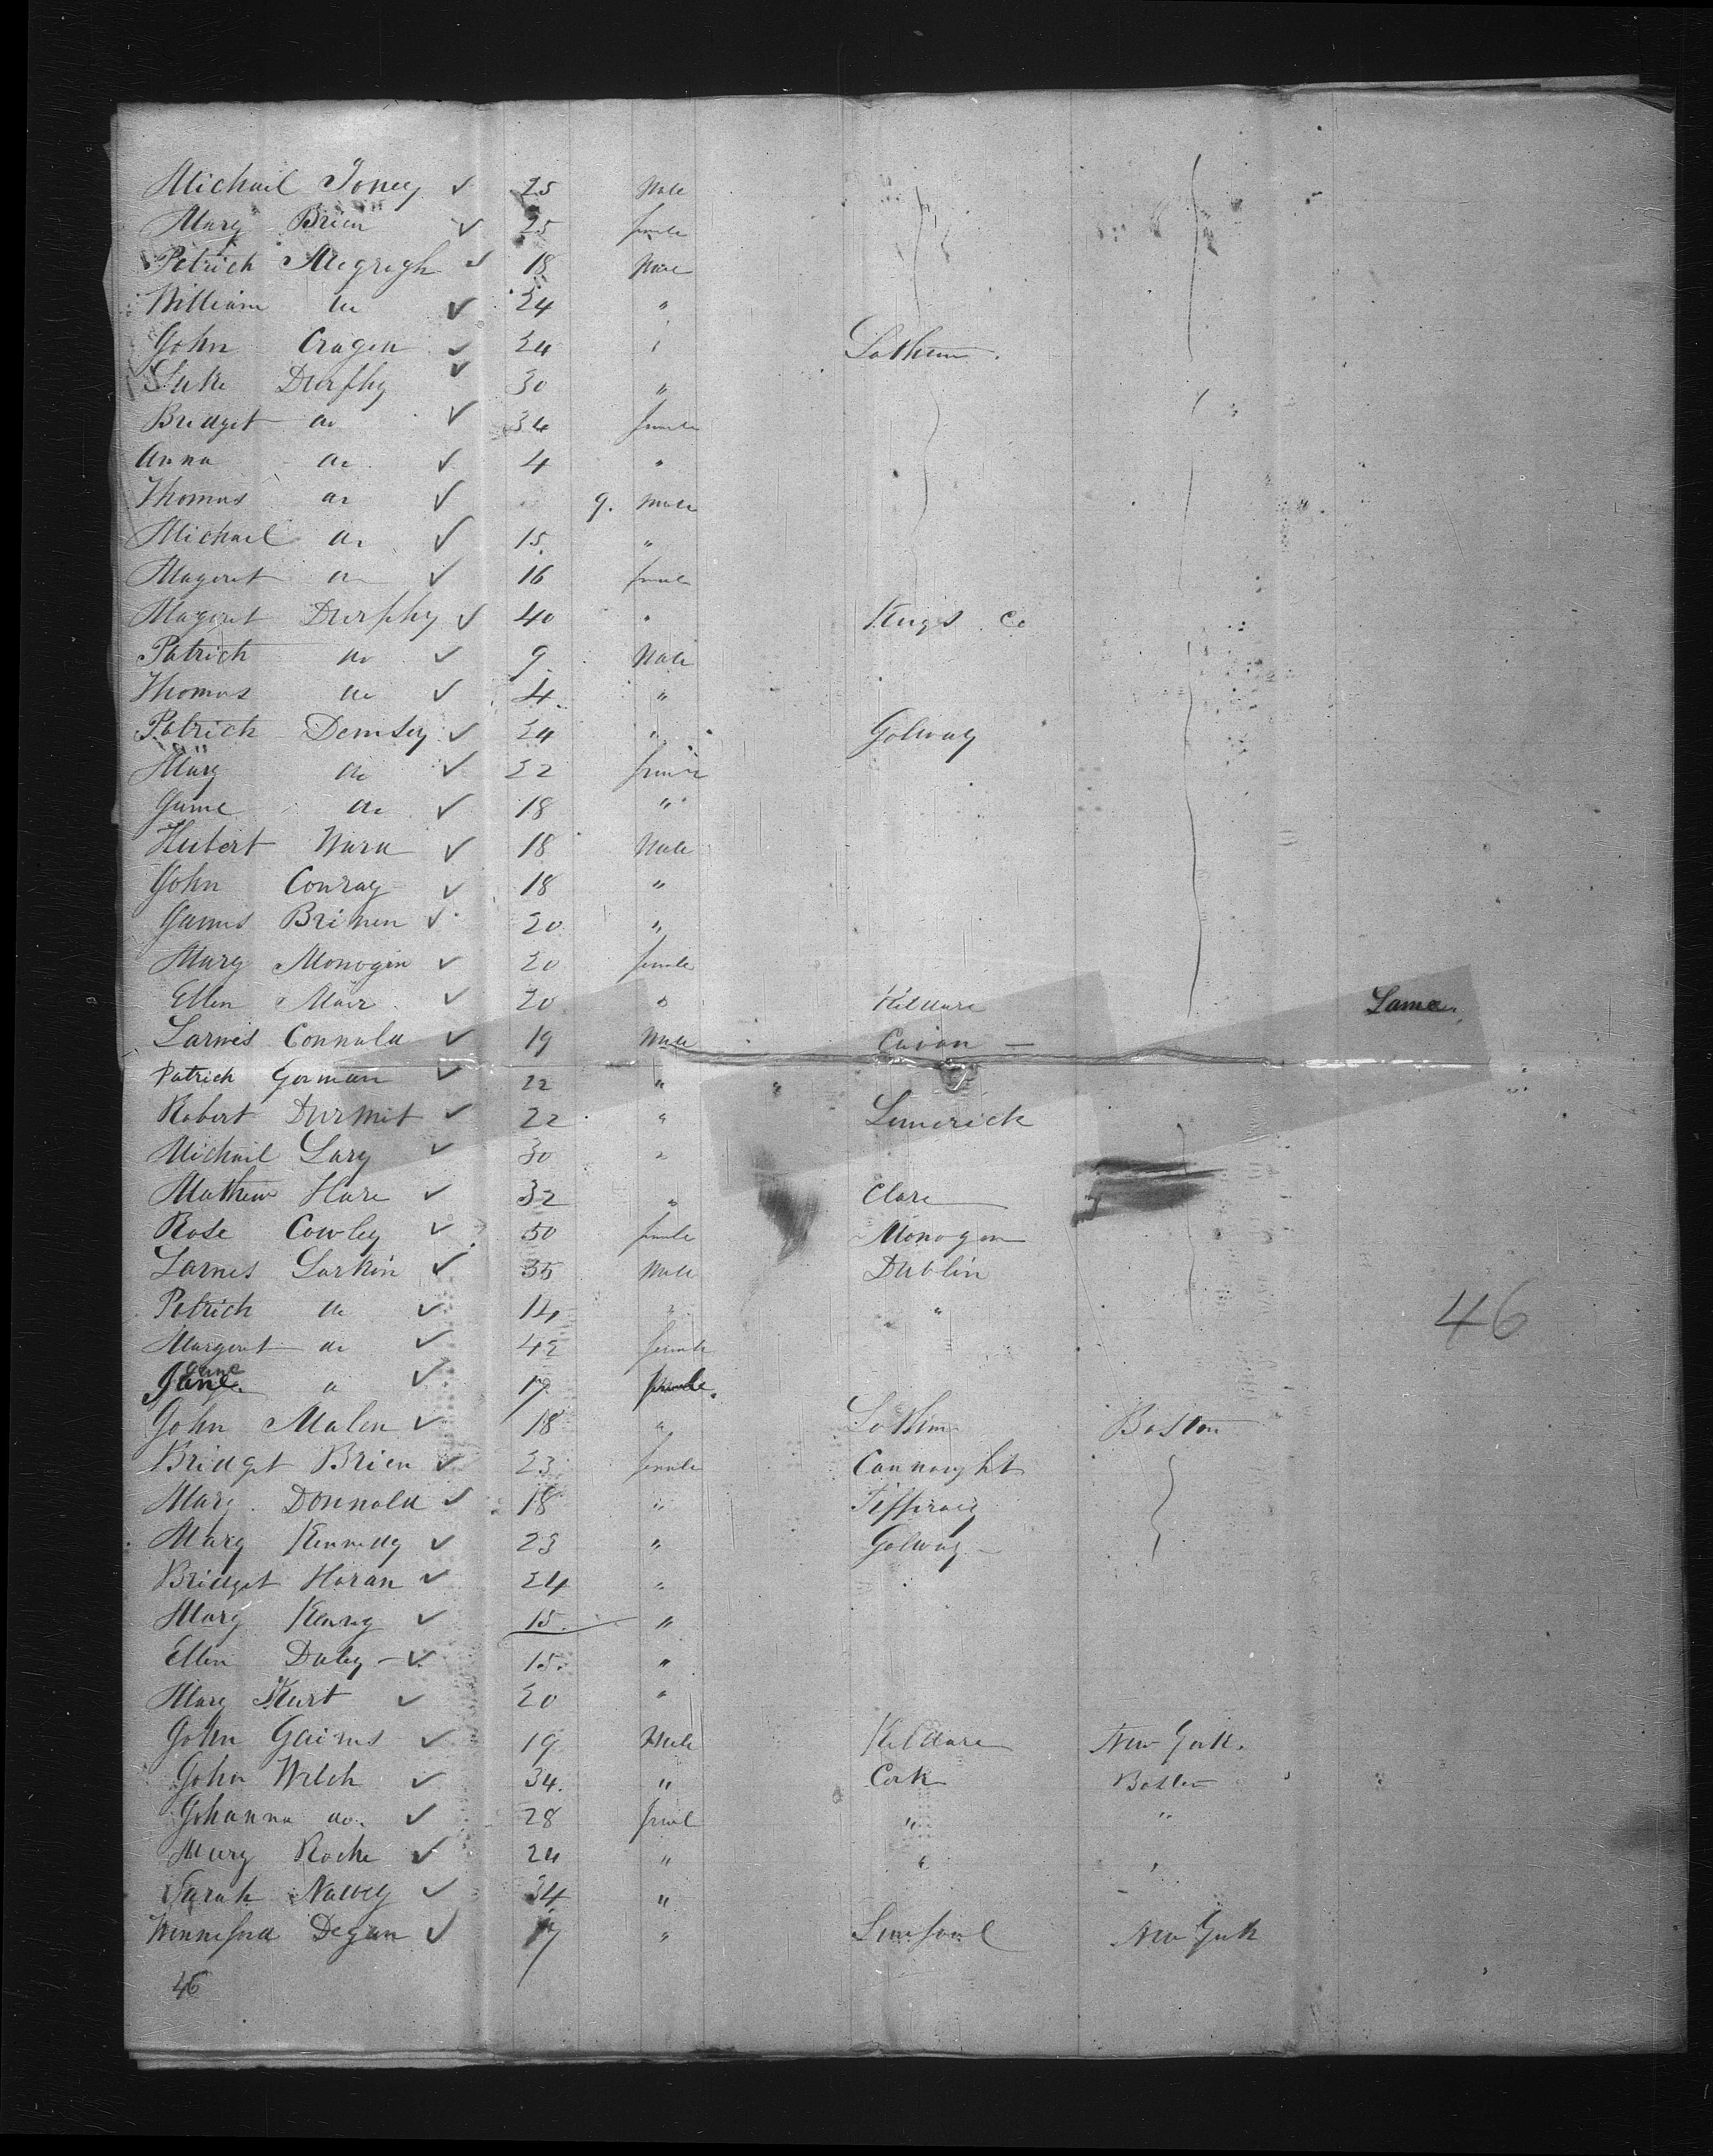 Michail Toney ✓ 25 Male
Mary Brien ✓ 25 female
Patrick Megregh ✓ 18 Male
William do ✓ 24 "
John Cragen ✓ 24 " Lothem.
Luke Durphy ✓ 30 "
Bridget do ✓ 34 female
Anna do ✓ 4 "
Thomas do ✓ 9. Male
Michael do ✓ 15. "
Mageret do ✓ 16 female
Mageret Durphy ✓ 40 " Kings Co
Patrick do ✓ 9. Male
Thomas do ✓ 4. "
Patrick Demsey ✓ 24 " Golway
Mary do ✓ 22 female
Jame do ✓ 18 "
Hubert Ward ✓ 18 Male
John Conray ✓ 18 "
James Brinen ✓ 20 "
Mary Monogin ✓ 20 female
Ellen Mair ✓ 20 " Kildare Lame
James Connald ✓ 19 Male Cavan
Patrick Gorman ✓ 22 " "
Robert Durmit ✓ 22 " Limerick
Michail Lary ✓ 30 "
Mathew Hare ✓ 32 " Clare
Rose Cowley ✓ 50 female Monogon
James Larkin ✓ 35 Male Dublin
Patrick do ✓ 14 " "
Margaret do ✓ 42 female
46
Jane " ✓ 17 female.
John Malen ✓ 18 " Lothem Boston
Bridget Brien ✓ 23 female Connaught
Mary Donnald ✓ 18 " Tipperary
Mary Kennedy ✓ 23 " Golway
Bridget Horan ✓ 24 "
Mary Keany ✓ 15. "
Ellen Daley ✓ 15. "
Mary Kurt ✓ 20 "
John Gairns ✓ 19 Male Kildare New York.
John Welch ✓ 34. " Cork Boston
Johanna do. ✓ 28 femal " "
Mary Roche ✓ 24 " " "
Sarah ✓ 34 "
Winnifred Degan ✓ " New York
46